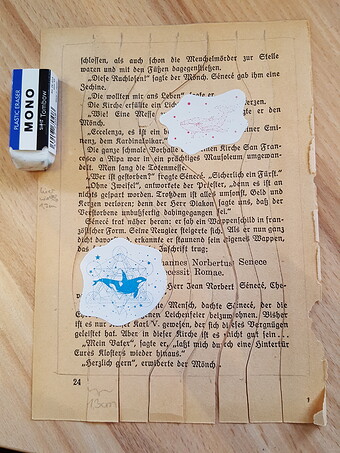 schlossen, als auch schon die Meuchelmörder zur Stelle
waren und mit den Füßen dagegenstießen.
„Diese Ruchlosen!“ sagte der Mönch. Sénecé gab ihm eine
Zechine.
„Die wollten mir ans Leben“, sagte er.
Die Kirche erfüllte ein Lich erzen.
„Wie! Eine Messe gte er den
Mönch.
„Eccelenza, es ist ein b iner Emi-
nenz, dem Kardinalvikar.“
Die ganze schmale Vorhalle n Kirche San Fran-
cesco a Ripa war in ein prächtiges Mausoleum umgewan-
delt. Man sang die Totenmesse.
„Wer ist gestorben?“ fragte Sénecé. „Sicherlich ein Fürst.“
„Ohne Zweifel“, antwortete der Priester, „denn es ist an
nichts gespart worden. Trotzdem ist alles umsonst. Geld und
Kerzen verloren; denn der Herr Diakon sagte uns, daß der
Verstorbene unbußfertig dahingegangen sei.“
Sénecé trat näher heran; er sah ein Wappenschild in fran-
zösischer Form. Seine Neugier steigerte sich. Als er nun ganz
dicht davor erkannte er staunend sein eigenes Wappen,
das Inschrift trug:
hannes Norbertus Senece
cessit Romae.
Herr Jean Norbert Sénecé, Che-
te Mensch, dachte Sénecé, der die
E einen Leichenfeier beizuwohnen. Bisher
ist es nur Kaiser Karl V. gewesen, der sich dieses Vergnügen
geleistet hat. Aber in dieser Kirche ist es nicht gut sein...
„Mein Vater“, sagte er, „laßt mich durch eine Hintertür
Eures Klosters wieder hinaus.“
„Herzlich gern“, erwiderte der Mönch.
24
1
13cm
PLASTIC ERASER
MONO
Tombow